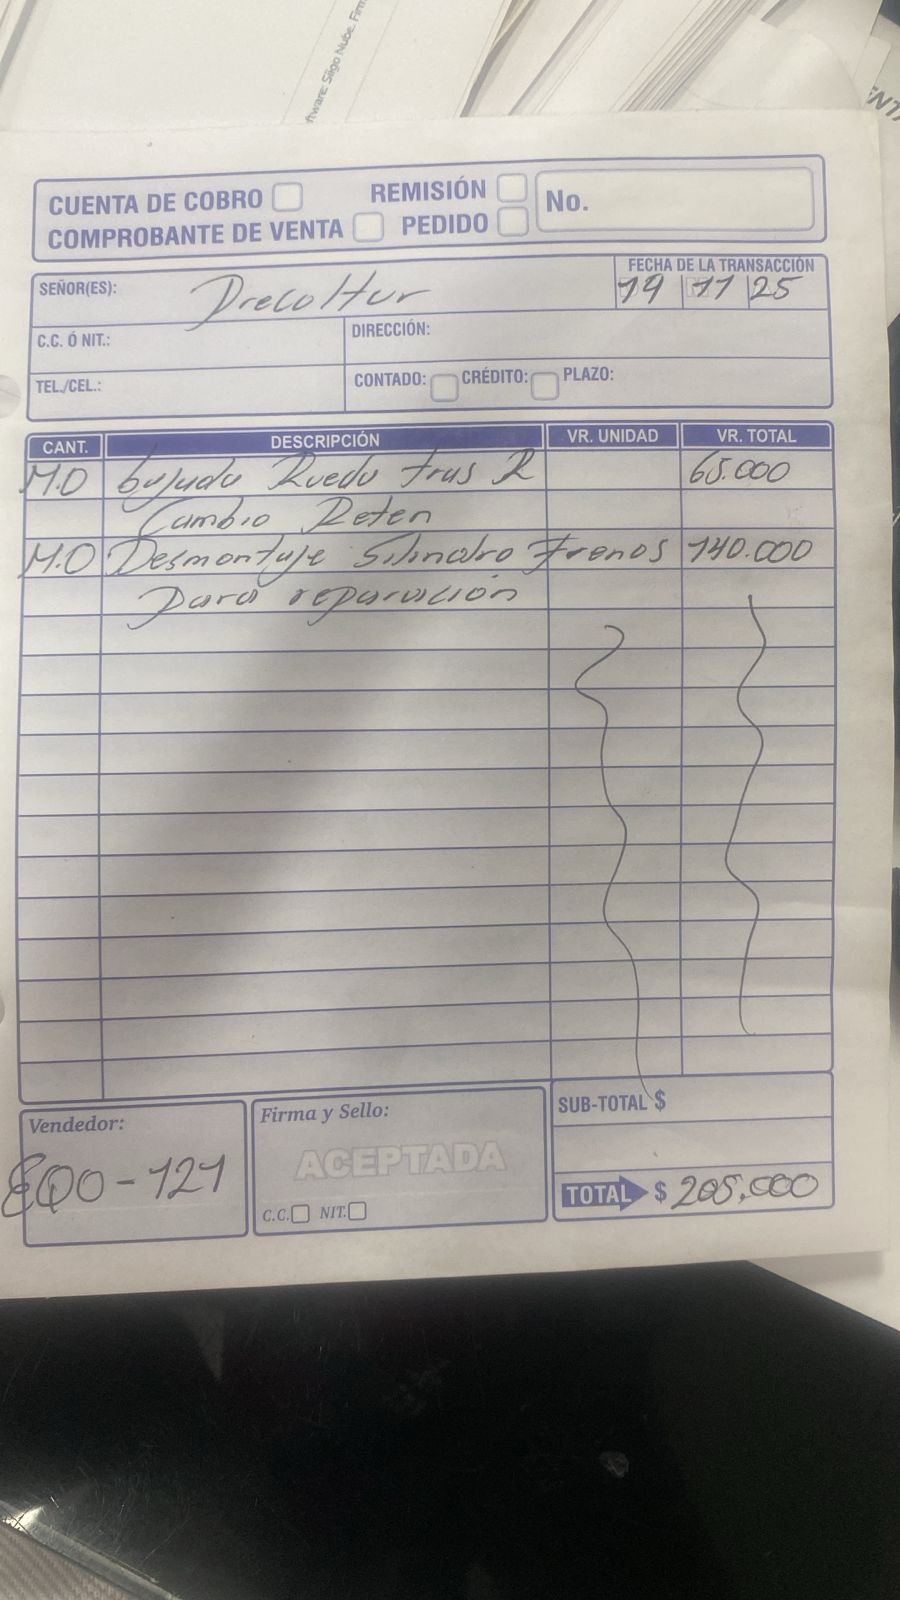 ftware Siigo Nube. Firm
CUENTA DE COBRO REMISIÓN No.
COMPROBANTE DE VENTA PEDIDO
SEÑOR(ES): FECHA DE LA TRANSACCIÓN
19 11 25
C.C. Ó NIT.: DIRECCIÓN:
TEL./CEL.: CONTADO: CRÉDITO: PLAZO:
CANT. DESCRIPCIÓN VR. UNIDAD VR. TOTAL
M.O bajada Rueda tras R 65.000
Cambio Reten
M.O Desmontaje Silindro Frenos 140.000
Para reparacion
SUB-TOTAL $
Vendedor: Firma y Sello:
EQO-121 ACEPTADA
C.C. NIT.
TOTAL $ 205,000